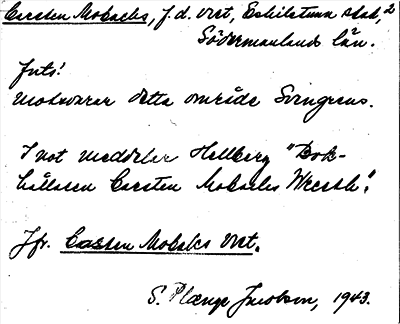 Carsten Mobacks, f.d. vret, Eskilstuna stad, 2
Södermanlands län.
Juts!
Motsvarar detta område Svingrens.
I not meddelar Hellberg "Bok-
hållaren Carsten Mobacks Wreeth".
Jfr. Casten Mobaks vret.
S. Plænge Jacobson, 1943.